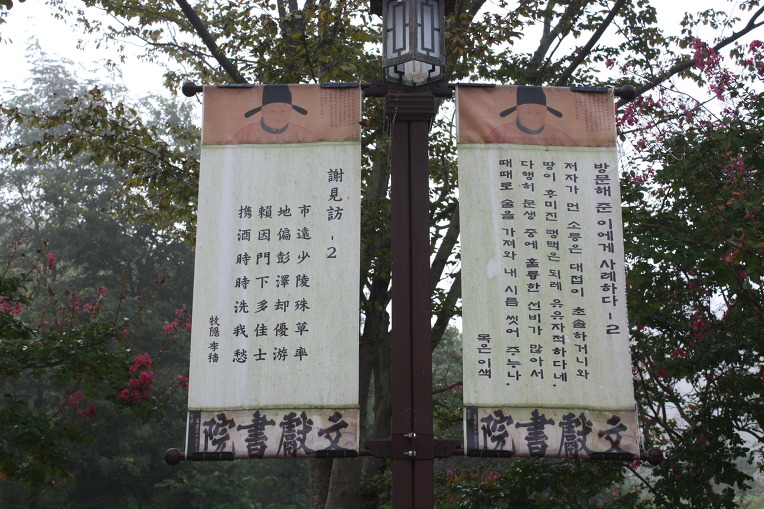 謝見訪-2
市遠少陵殊草率
地偏彭澤却優游
賴因門下多佳士
携酒時時洗我愁
牧隱 李穡
文獻書院
방문해 준 이에게 사례하다-2
저자가 먼 소릉은 대접이 초솔하거니와
땅이 후미진 팽택은 되레 유유자적하다네.
다행히 문생 중에 훌륭한 선비가 많아서
때때로 술을 가져와 내 시름 씻어 주누나.
목은이색
文獻書院